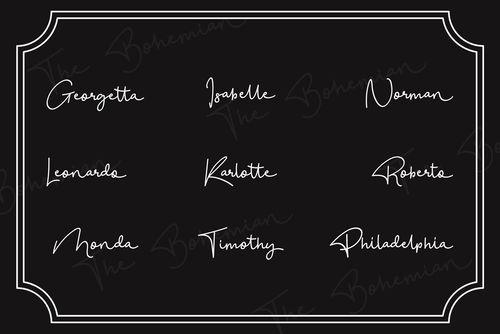 Georgetta Isabelle Norman
Leonardo Karlotte Roberto
Monda Timothy Philadelphia
The Bohemian
The Bohemian
The Bohemian
The Bohemian